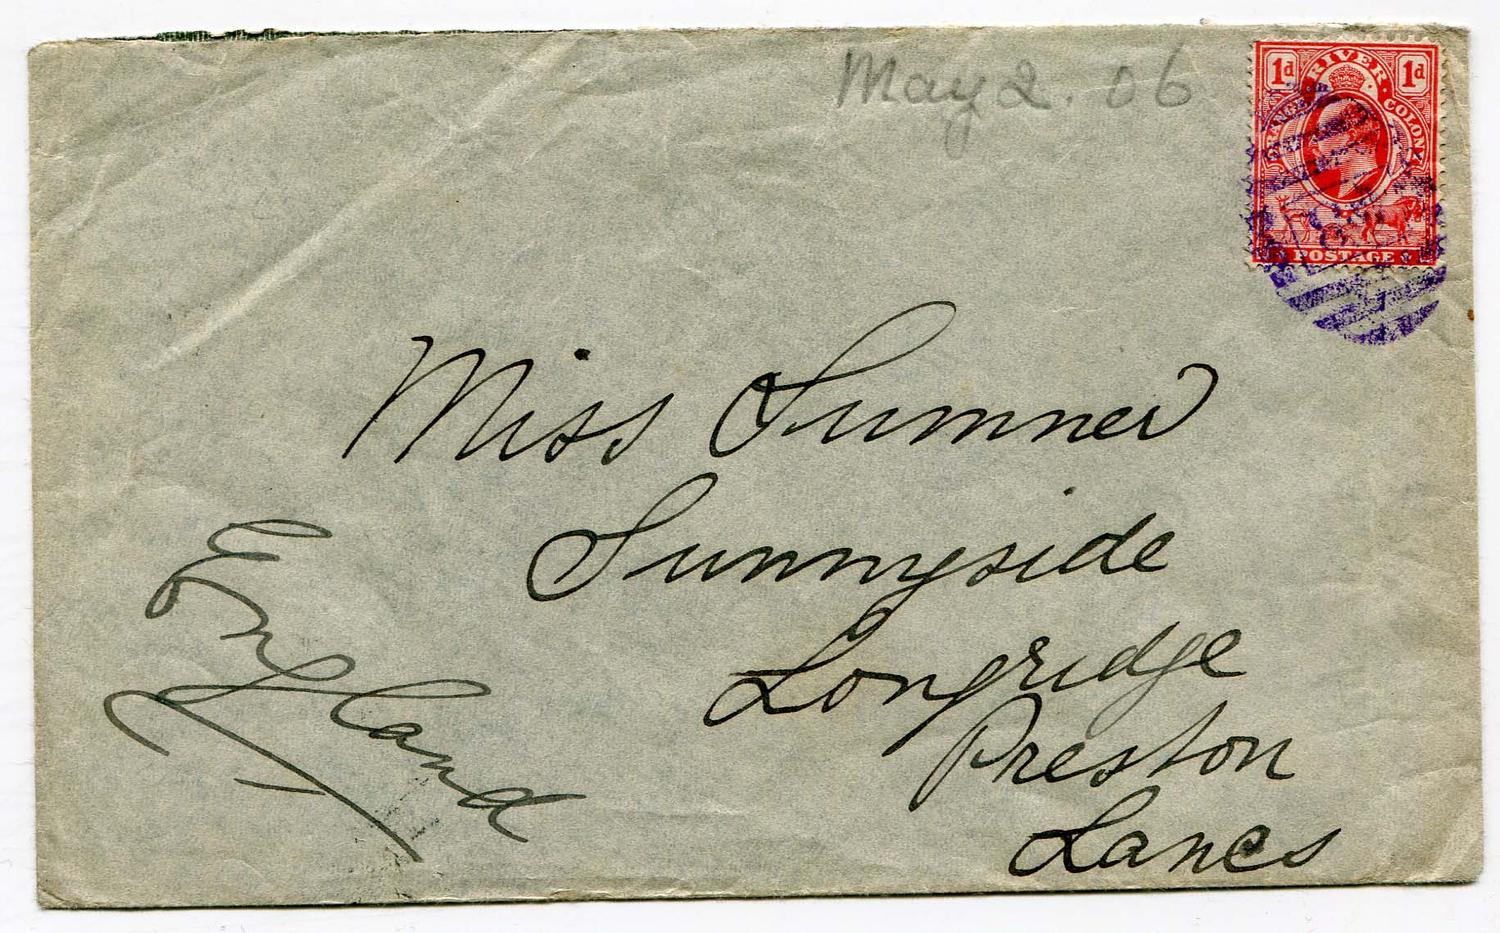 May 2. 06
1d RIVER 1d
ORANGE COLONY
POSTAGE
Miss Sumner
Sunnyside
Longridge
Preston
Lancs
England